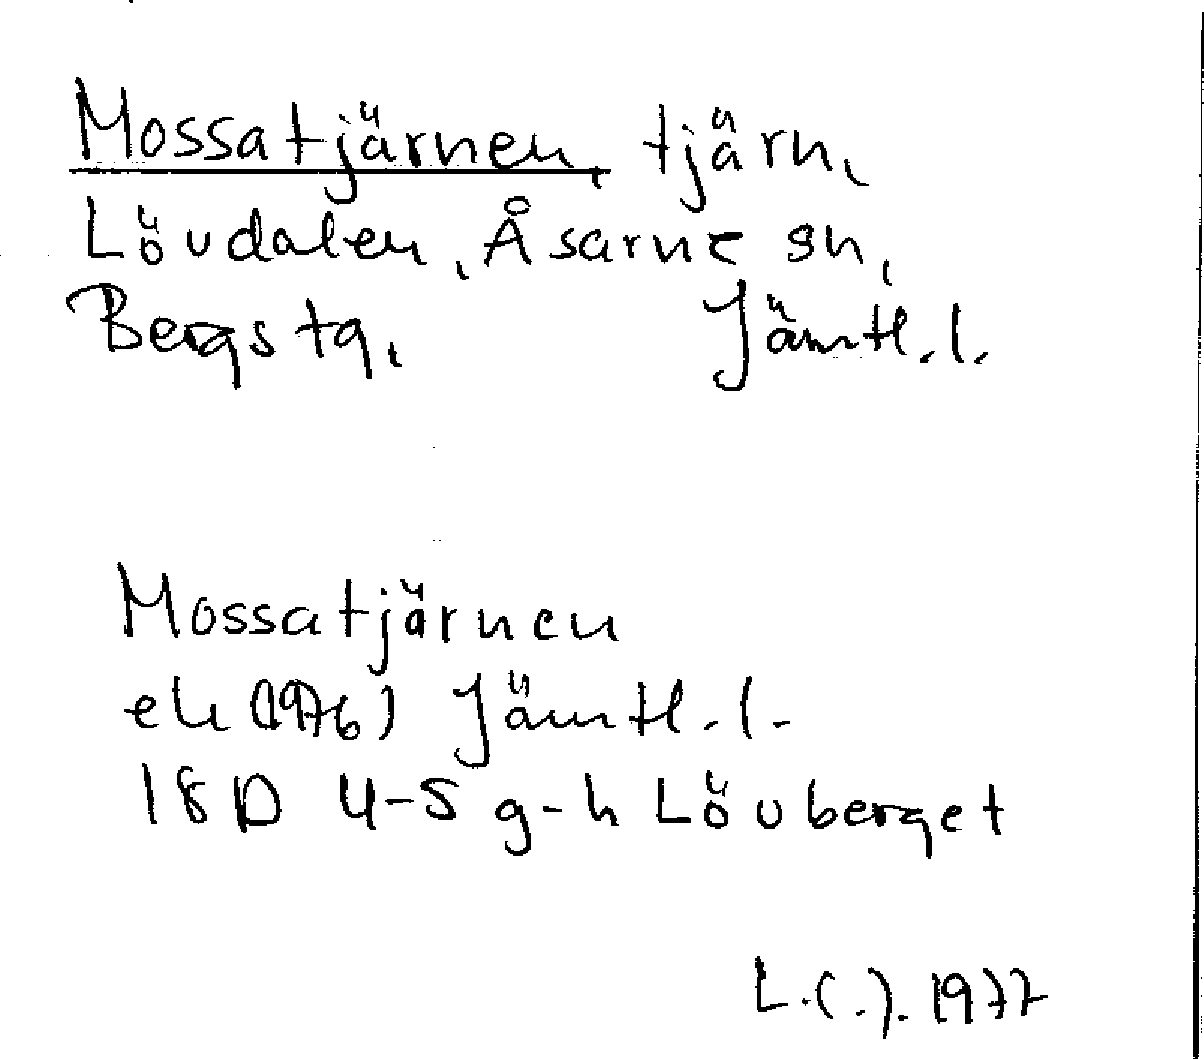 Mossatjärnen, tjärn,
Lövdalen, Åsarne sn,
Bergs tg, Jämtl. l.
Mossatjärnen
ek (1976) Jämtl. l.
18D 4-5 g-h Lövberget
L.(.). 1977